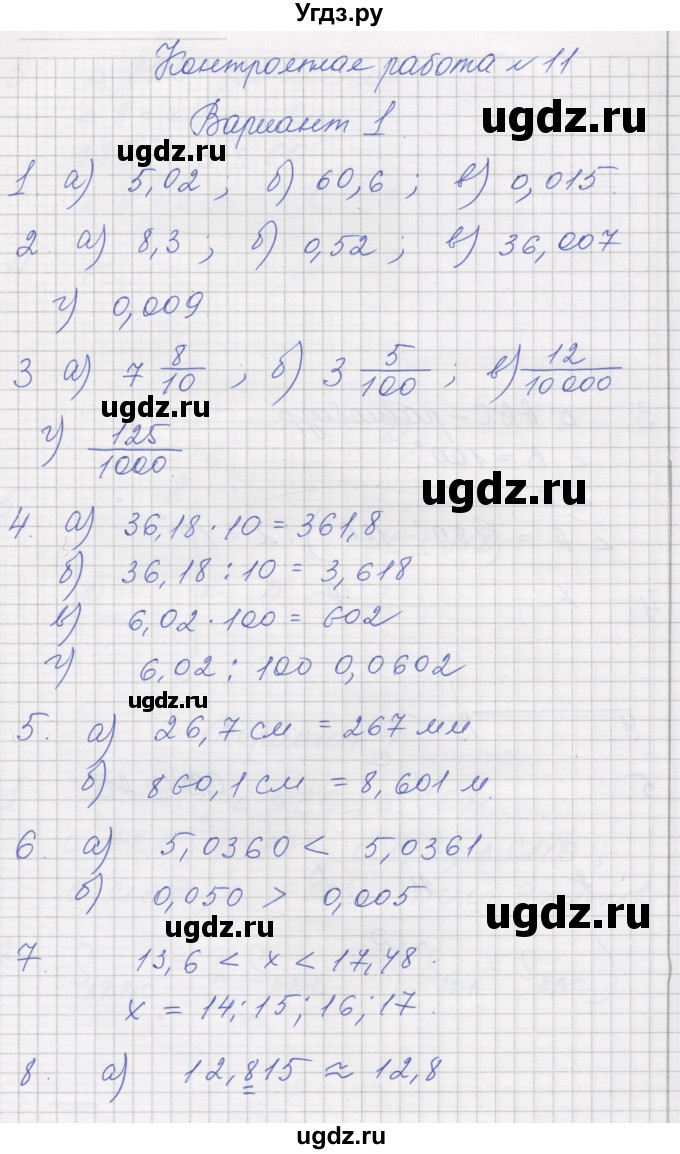 Угдз.ру
Контрольная работа №11
Вариант 1
ugdz.ru
ugdz.ru
1 а) 5,02 ; б) 60,6 ; в) 0,015.
2. а) 8,3 ; б) 0,52 ; в) 36,007
г) 0,009
3 а) 7 8/10 ; б) 3 5/100 ; в) 12/10000
ugdz.ru
г) 125/1000.
ugdz.ru
4. а) 36,18 · 10 = 361,8
б) 36,18 : 10 = 3,618
в) 6,02 · 100 = 602
г) 6,02 : 100 0,0602
ugdz.ru
5. а) 26,7 см = 267 мм.
б) 860,1 см = 8,601 м.
6. а) 5,0360 < 5,0361
б) 0,050 > 0,005
ugdz.ru
ugdz.ru
7. 13,6 < x < 17,48.
x = 14; 15; 16; 17.
8. а) 12,815 ≈ 12,8
ugdz.ru